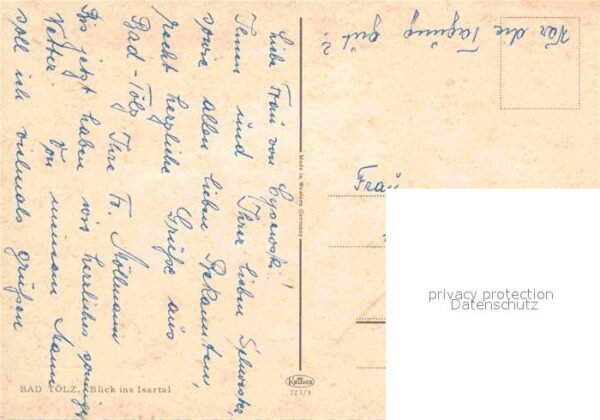 Liebe Frau von Cysewski!
Ihnen und Ihrer lieben
sowie allen lieben Bekannten,
recht herzliche Grüße aus
Bad-Tölz Ihre Fr. Möllmann
Bis jetzt haben wir herrliches sonniges
Wetter. Von meinem Mann
soll ich vielmals grüßen
War die Tagung gut?
Frau
Made in Western Germany
privacy protection
Datenschutz
BAD TÖLZ, Blick ins Isartal
Kellner
721/3